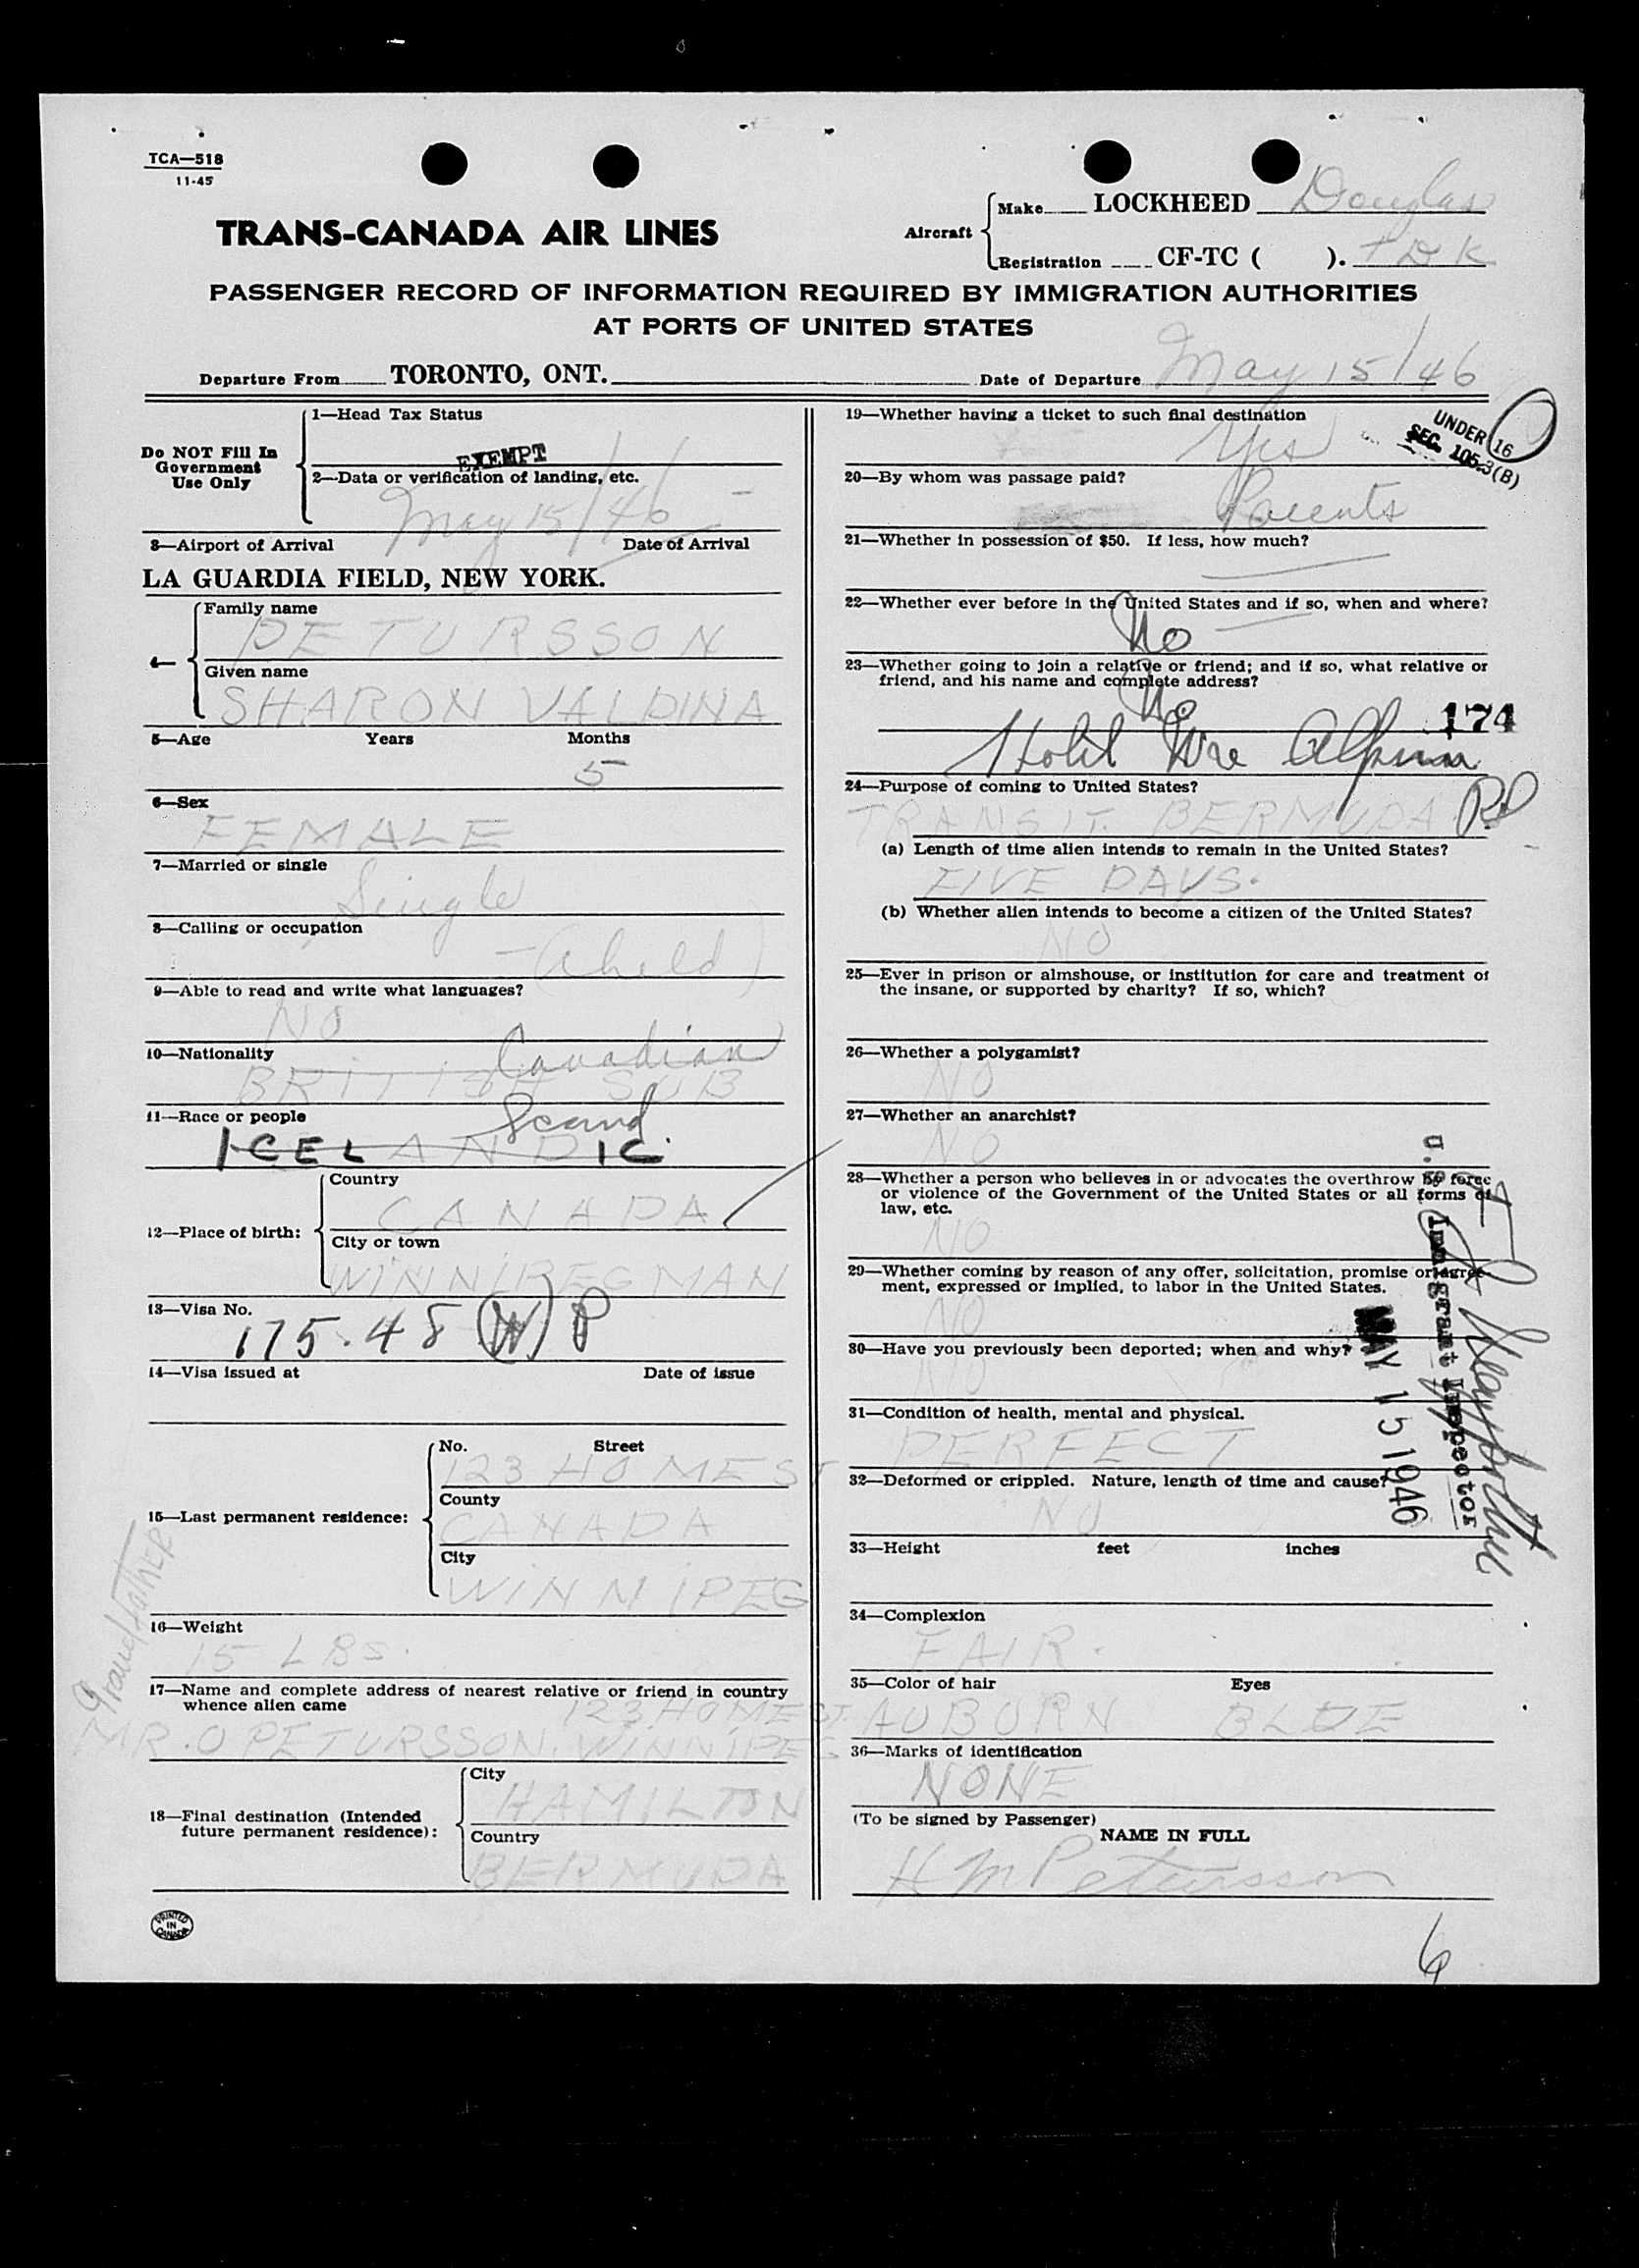 TCA—518
11-45
Make LOCKHEED Douglas
TRANS-CANADA AIR LINES
Aircraft
Registration CF-TC ( ). TDK
PASSENGER RECORD OF INFORMATION REQUIRED BY IMMIGRATION AUTHORITIES
AT PORTS OF UNITED STATES
Departure From TORONTO, ONT. Date of Departure May 15/46
Do NOT Fill In
Government
Use Only
1—Head Tax Status
EXEMPT
2—Data or verification of landing, etc.
May 15/46 —
3—Airport of Arrival Date of Arrival
LA GUARDIA FIELD, NEW YORK.
4—
Family name
PETURSSON
Given name
SHARON VALDINA
5—Age Years Months
5
6—Sex
FEMALE
7—Married or single
Single
8—Calling or occupation
— (child)
9—Able to read and write what languages?
NO
10—Nationality Canadian
BRITISH SUB
11—Race or people Scand
ICELANDIC
12—Place of birth:
Country
CANADA
City or town
WINNIPEG MAN
13—Visa No.
175.48 (W) P
14—Visa issued at Date of issue
15—Last permanent residence:
No. Street
123 HOME ST
County
CANADA
City
WINNIPEG
16—Weight
15 LBS.
Grandfather
17—Name and complete address of nearest relative or friend in country
whence alien came 123 HOME ST
MR. O PETURSSON. WINNIPEG
18—Final destination (Intended
future permanent residence):
City
HAMILTON
Country
BERMUDA
PRINTED
IN
CANADA
19—Whether having a ticket to such final destination
Yes
UNDER 16
SEC. 105.3(B)
20—By whom was passage paid?
Parents
21—Whether in possession of $50. If less, how much?
22—Whether ever before in the United States and if so, when and where?
No
23—Whether going to join a relative or friend; and if so, what relative or
friend, and his name and complete address?
No
174
24—Purpose of coming to United States?
TRANSIT. BERMUDA
(a) Length of time alien intends to remain in the United States?
FIVE DAYS.
(b) Whether alien intends to become a citizen of the United States?
NO
25—Ever in prison or almshouse, or institution for care and treatment of
the insane, or supported by charity? If so, which?
26—Whether a polygamist?
NO
27—Whether an anarchist?
NO
28—Whether a person who believes in or advocates the overthrow by force
or violence of the Government of the United States or all forms of
law, etc.
NO
29—Whether coming by reason of any offer, solicitation, promise or agree-
ment, expressed or implied, to labor in the United States.
NO
30—Have you previously been deported; when and why?
NO
31—Condition of health, mental and physical.
PERFECT
32—Deformed or crippled. Nature, length of time and cause?
NO
U.S. Immigrant Inspector
MAY 15 1946
33—Height feet inches
34—Complexion
FAIR.
35—Color of hair Eyes
AUBURN BLUE
36—Marks of identification
NONE
(To be signed by Passenger)
NAME IN FULL
H M Petursson
6